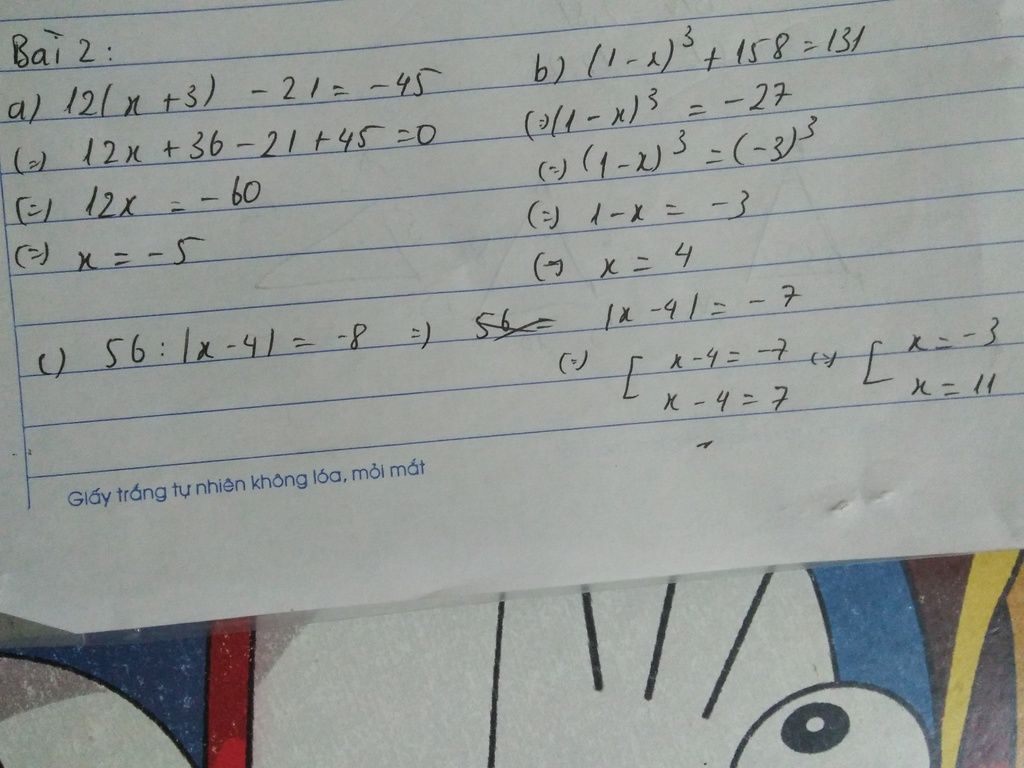 Bài 2:
a) 12(x + 3) - 21 = -45
(=) 12x + 36 - 21 + 45 = 0
(=) 12x = -60
(=) x = -5
b) (1 - x)³ + 158 = 131
(=) (1 - x)³ = -27
(=) (1 - x)³ = (-3)³
(=) 1 - x = -3
(=) x = 4
c) 56 : |x - 4| = -8 =) 56 = |x - 4| = -7
(=) [ x - 4 = -7 (=) [ x = -3
x - 4 = 7 x = 11
Giấy trắng tự nhiên không lóa, mỏi mắt